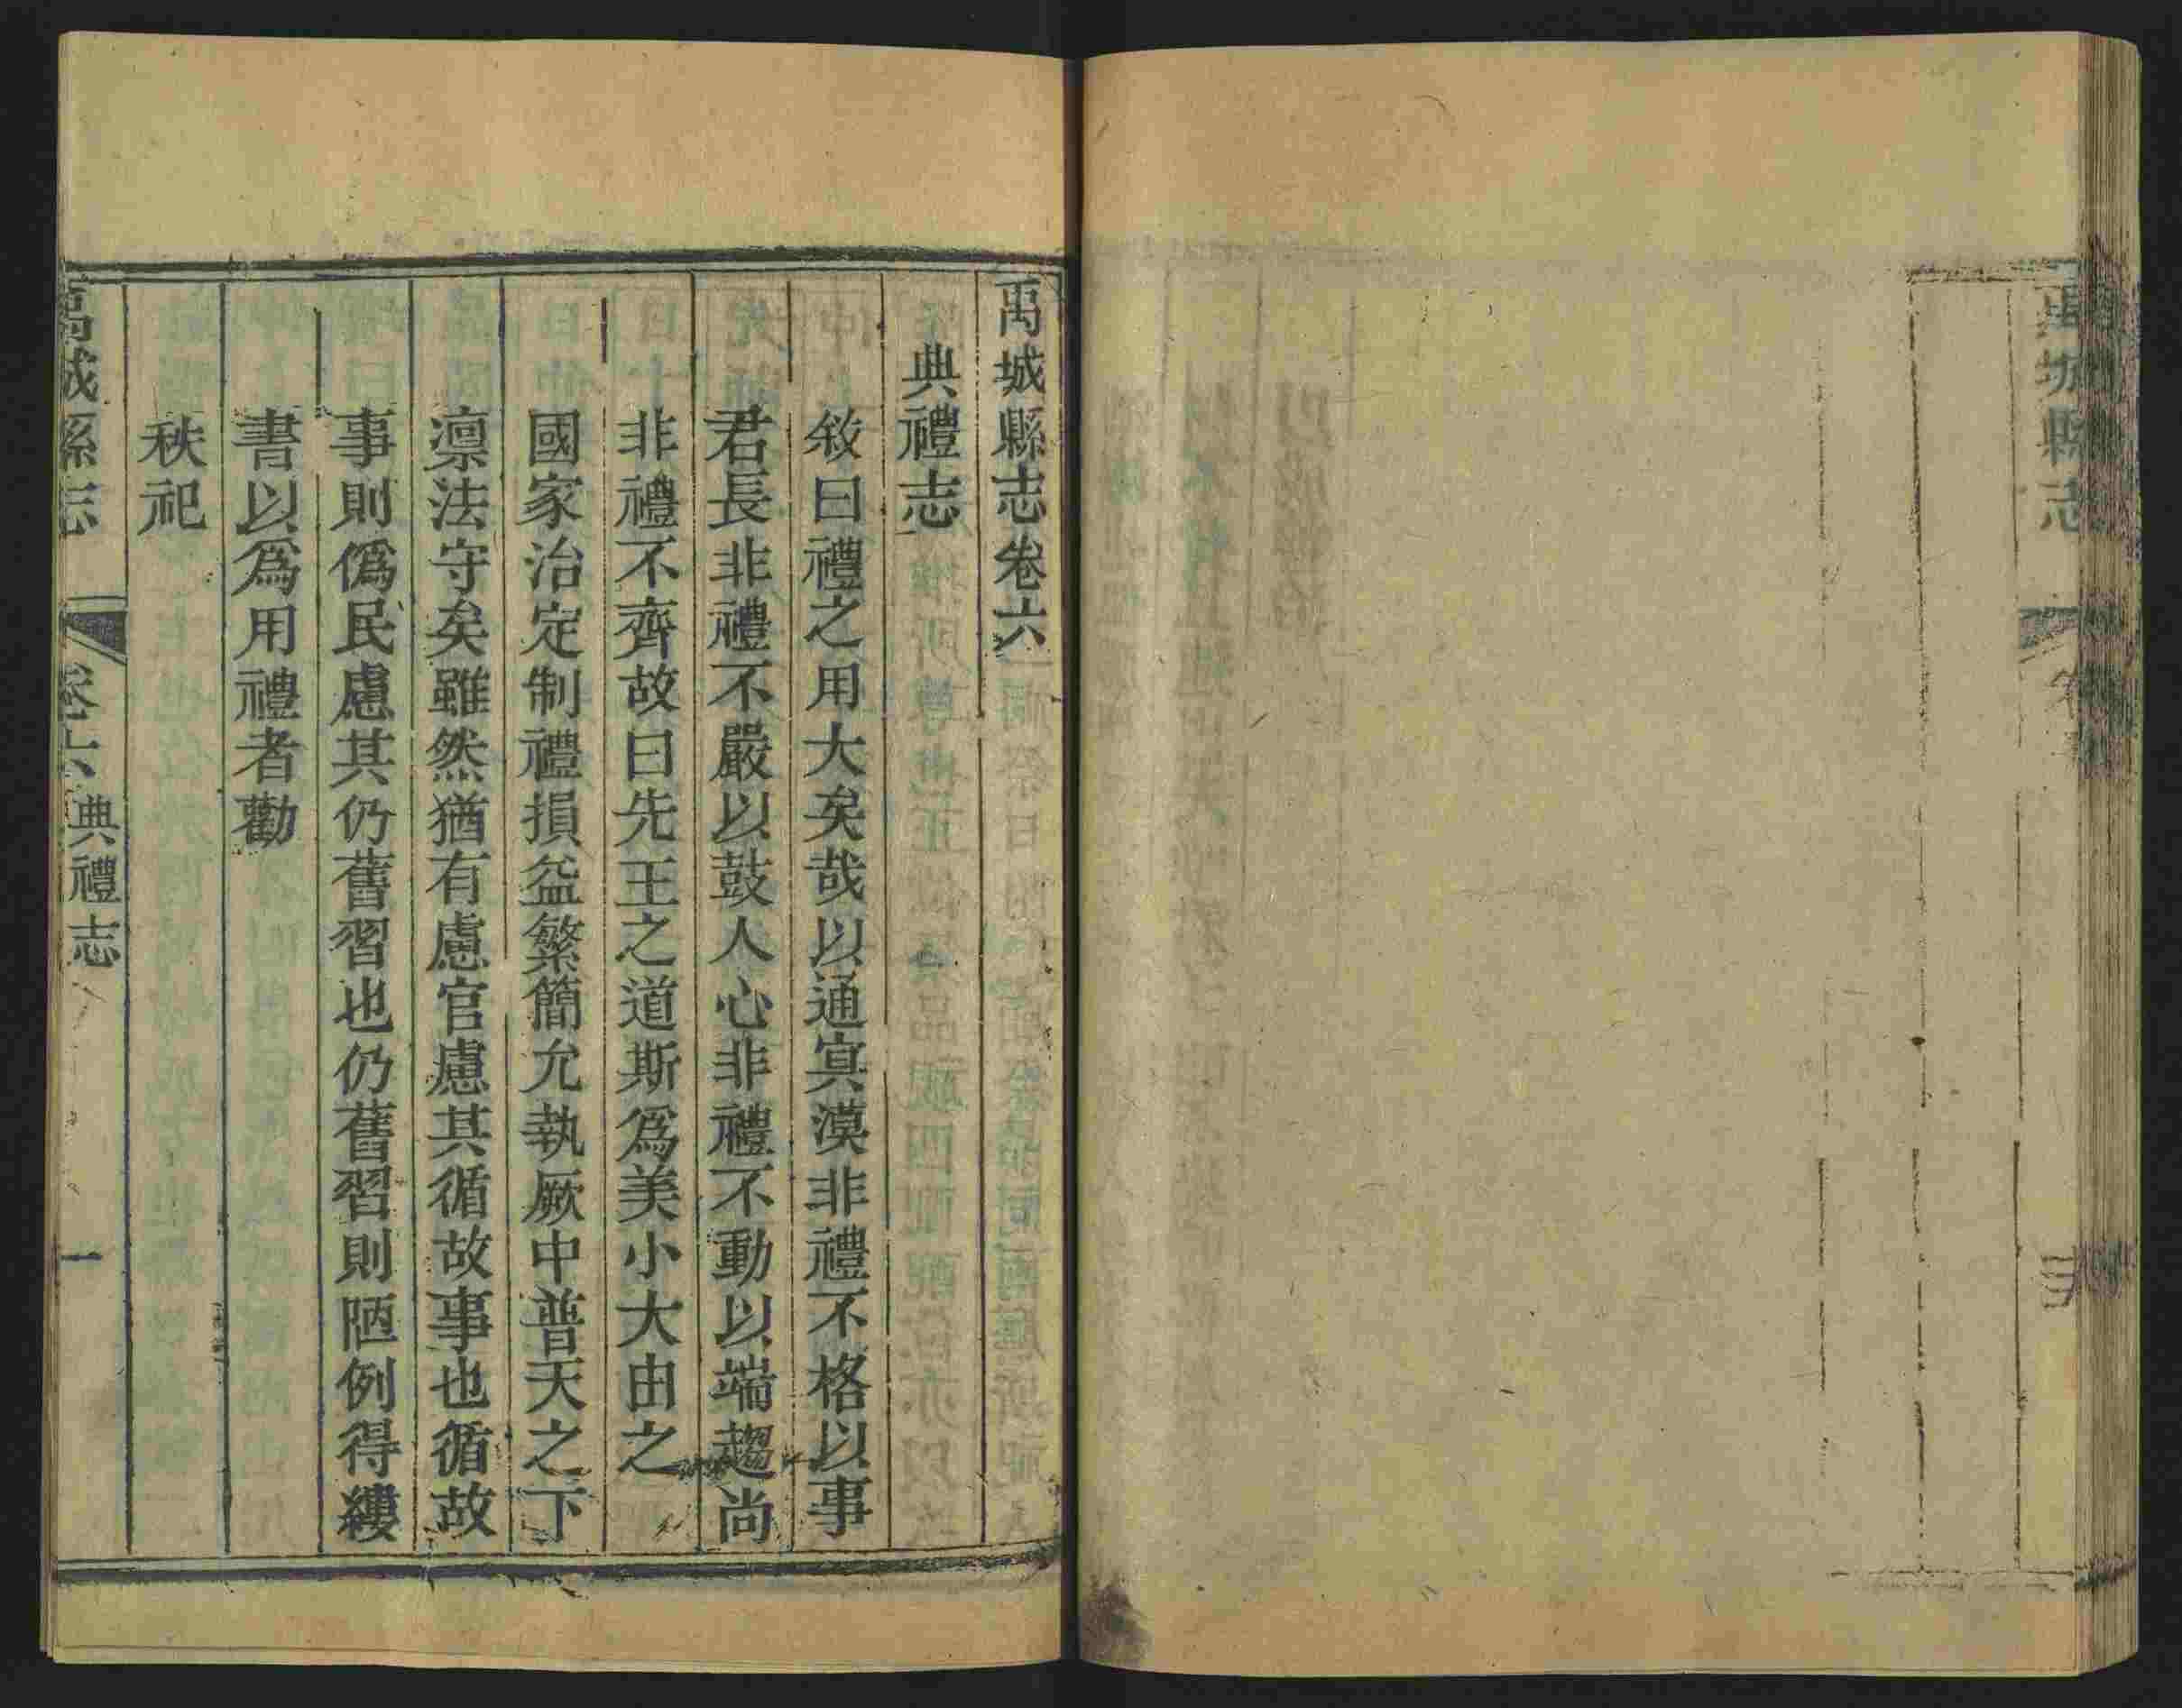 禹城縣志
禹城縣志卷六
典禮志
敘曰禮之用大矣哉以通冥漠非禮不格以事
君長非禮不嚴以鼓人心非禮不動以端趨尚
非禮不齊故曰先王之道斯爲美小大由之
國家治定制禮損益繁簡允執厥中普天之下
凛法守矣雖然猶有慮官慮其循故事也循故
事則僞民慮其仍舊習也仍舊習則陋例得縷
書以爲用禮者勸
秩祀
禹城縣志 卷六 典禮志 一